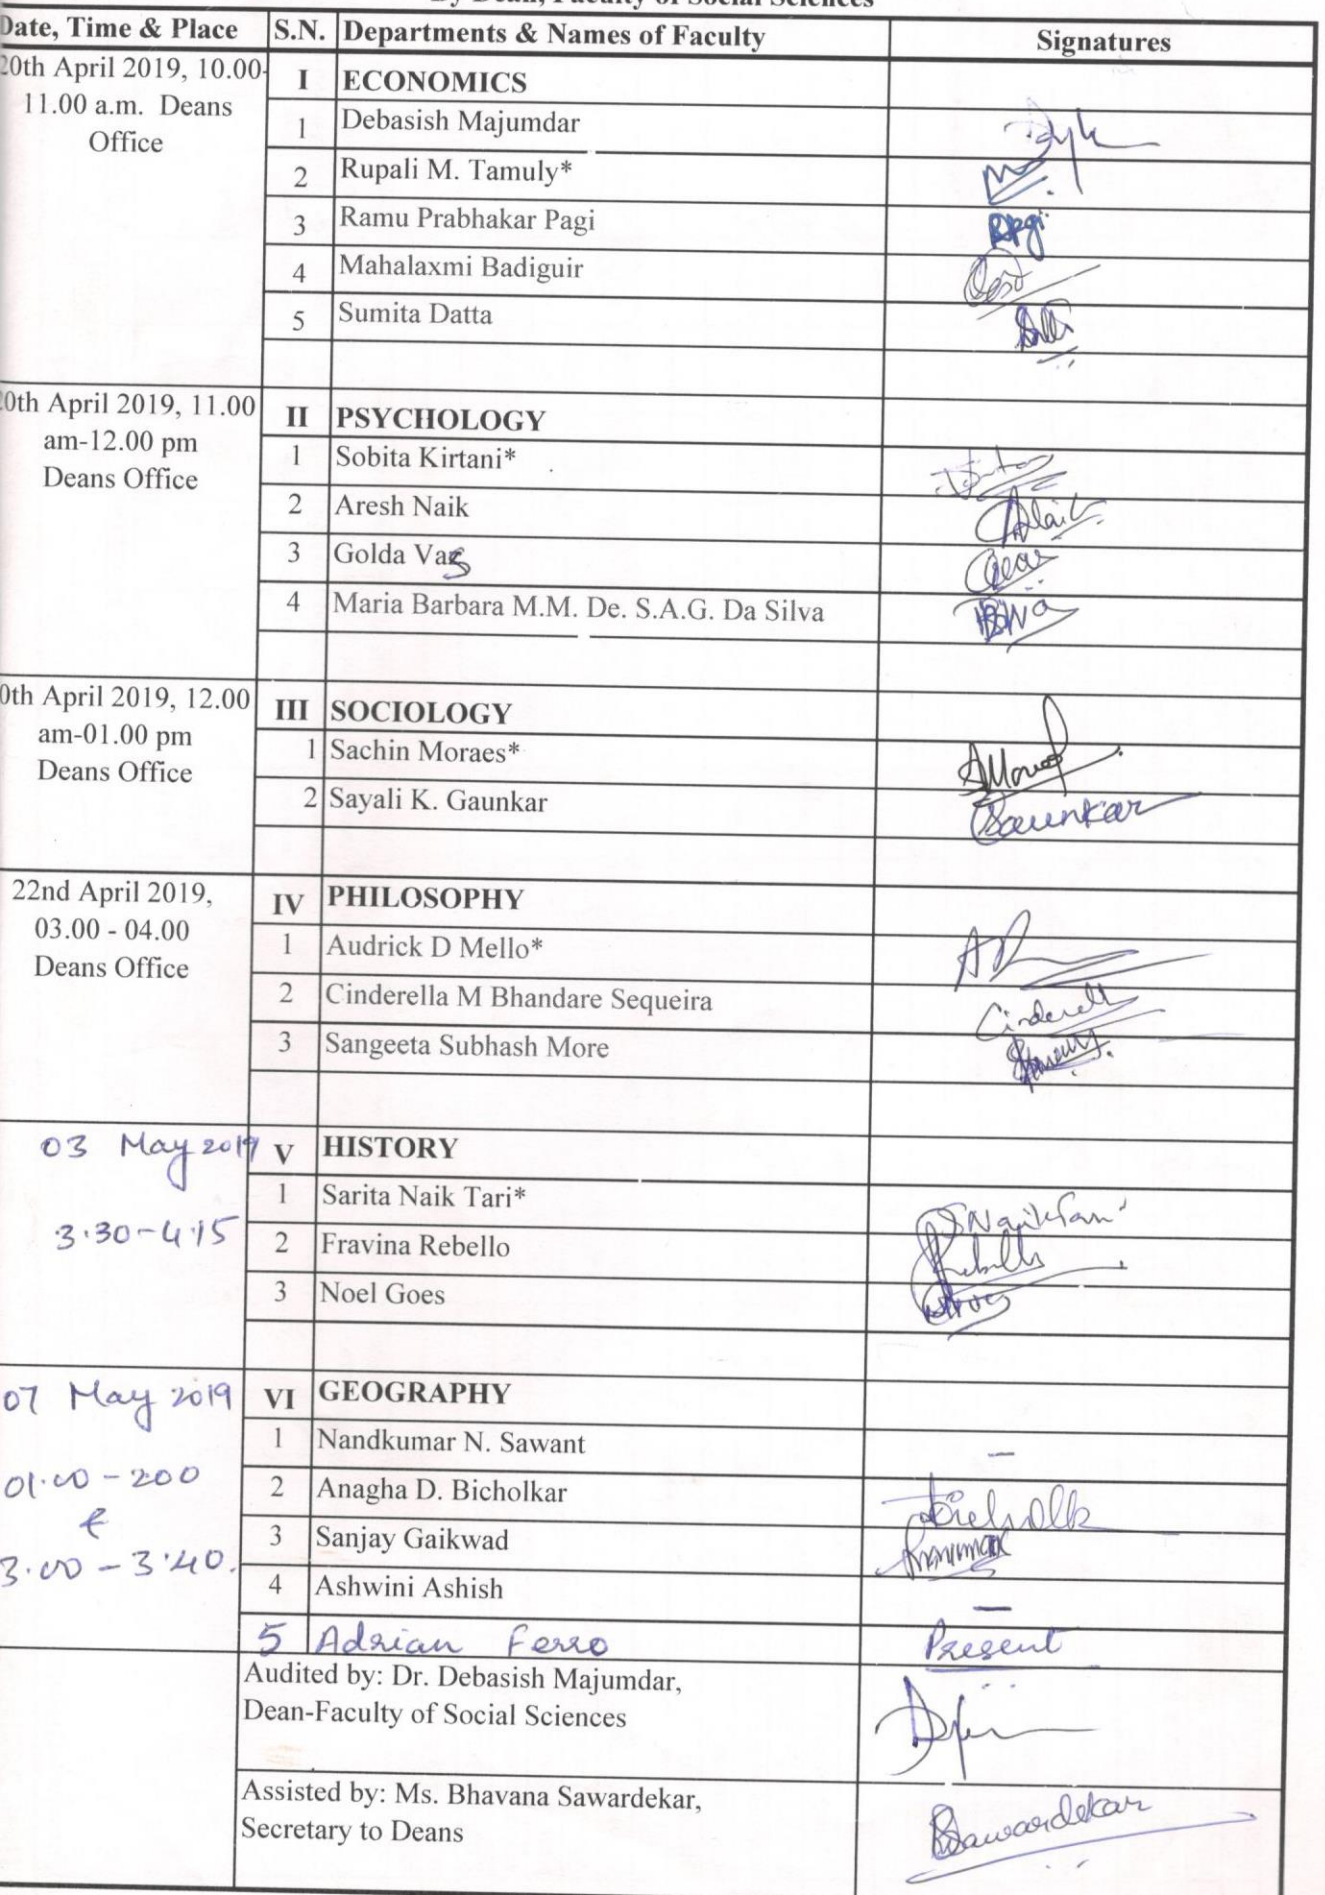 By Dean, Faculty of Social Sciences
Date, Time & Place S.N. Departments & Names of Faculty Signatures
20th April 2019, 10.00-
11.00 a.m. Deans
Office
I ECONOMICS
1 Debasish Majumdar
2 Rupali M. Tamuly*
3 Ramu Prabhakar Pagi
4 Mahalaxmi Badiguir
5 Sumita Datta
0th April 2019, 11.00
am-12.00 pm
Deans Office
II PSYCHOLOGY
1 Sobita Kirtani*
2 Aresh Naik
3 Golda Vas
4 Maria Barbara M.M. De. S.A.G. Da Silva
0th April 2019, 12.00
am-01.00 pm
Deans Office
III SOCIOLOGY
1 Sachin Moraes*
2 Sayali K. Gaunkar Gaunkar
22nd April 2019,
03.00 - 04.00
Deans Office
IV PHILOSOPHY
1 Audrick D Mello*
2 Cinderella M Bhandare Sequeira
3 Sangeeta Subhash More
03 May 2019
3.30-4.15
V HISTORY
1 Sarita Naik Tari*
2 Fravina Rebello
3 Noel Goes
07 May 2019
01.00 - 200
&
3.00 - 3.40.
VI GEOGRAPHY
1 Nandkumar N. Sawant —
2 Anagha D. Bicholkar
3 Sanjay Gaikwad
4 Ashwini Ashish —
5 Adrian Ferro Present
Audited by: Dr. Debasish Majumdar,
Dean-Faculty of Social Sciences
Assisted by: Ms. Bhavana Sawardekar,
Secretary to Deans
BSawardekar